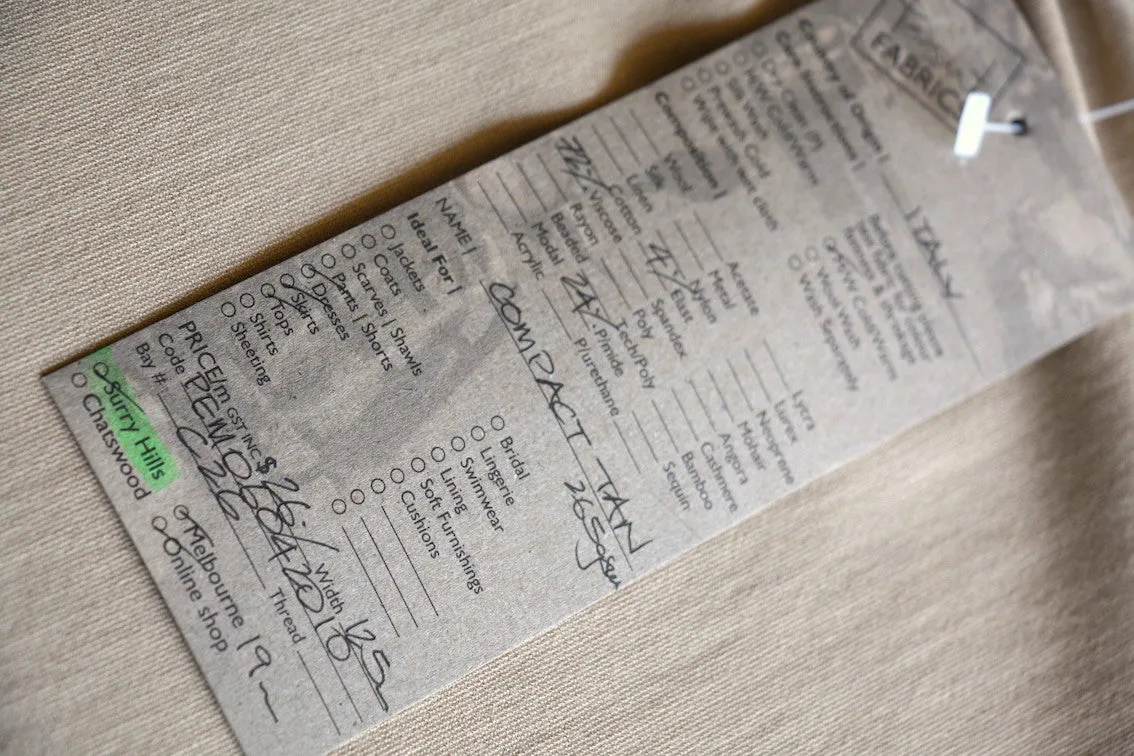 FABRIC
Country of Origin | ITALY
Care Instructions |
Dry Clean (P)
H/W Cold/Warm
Silk Wash
Pressed Cloth
Wipe with damp cloth
H/W Cold/Warm
Wool Wash
Wash Separately
Composition |
Wool
Silk
Linen
Cotton
Viscose
Rayon
Beaded
Modal
Acrylic
Acetate
Metal
Nylon
4% Elast.
Spandex
Poly
Tech/Poly
24% P/imide
P/urethane
Lycra
Lurex
Neoprene
Mohair
Angora
Cashmere
Bamboo
Sequin
NAME | COMPACT TAN
265gsm
Ideal For |
Jackets
Coats
Scarves | Shawls
Pants | Shorts
Dresses
Skirts
Tops
Shirts
Sheeting
Bridal
Lingerie
Swimwear
Lining
Soft Furnishings
Cushions
PRICE/m GST INC $ Width
Code
Bay #. Thread
Surry Hills Melbourne 19m
Chatswood Online shop